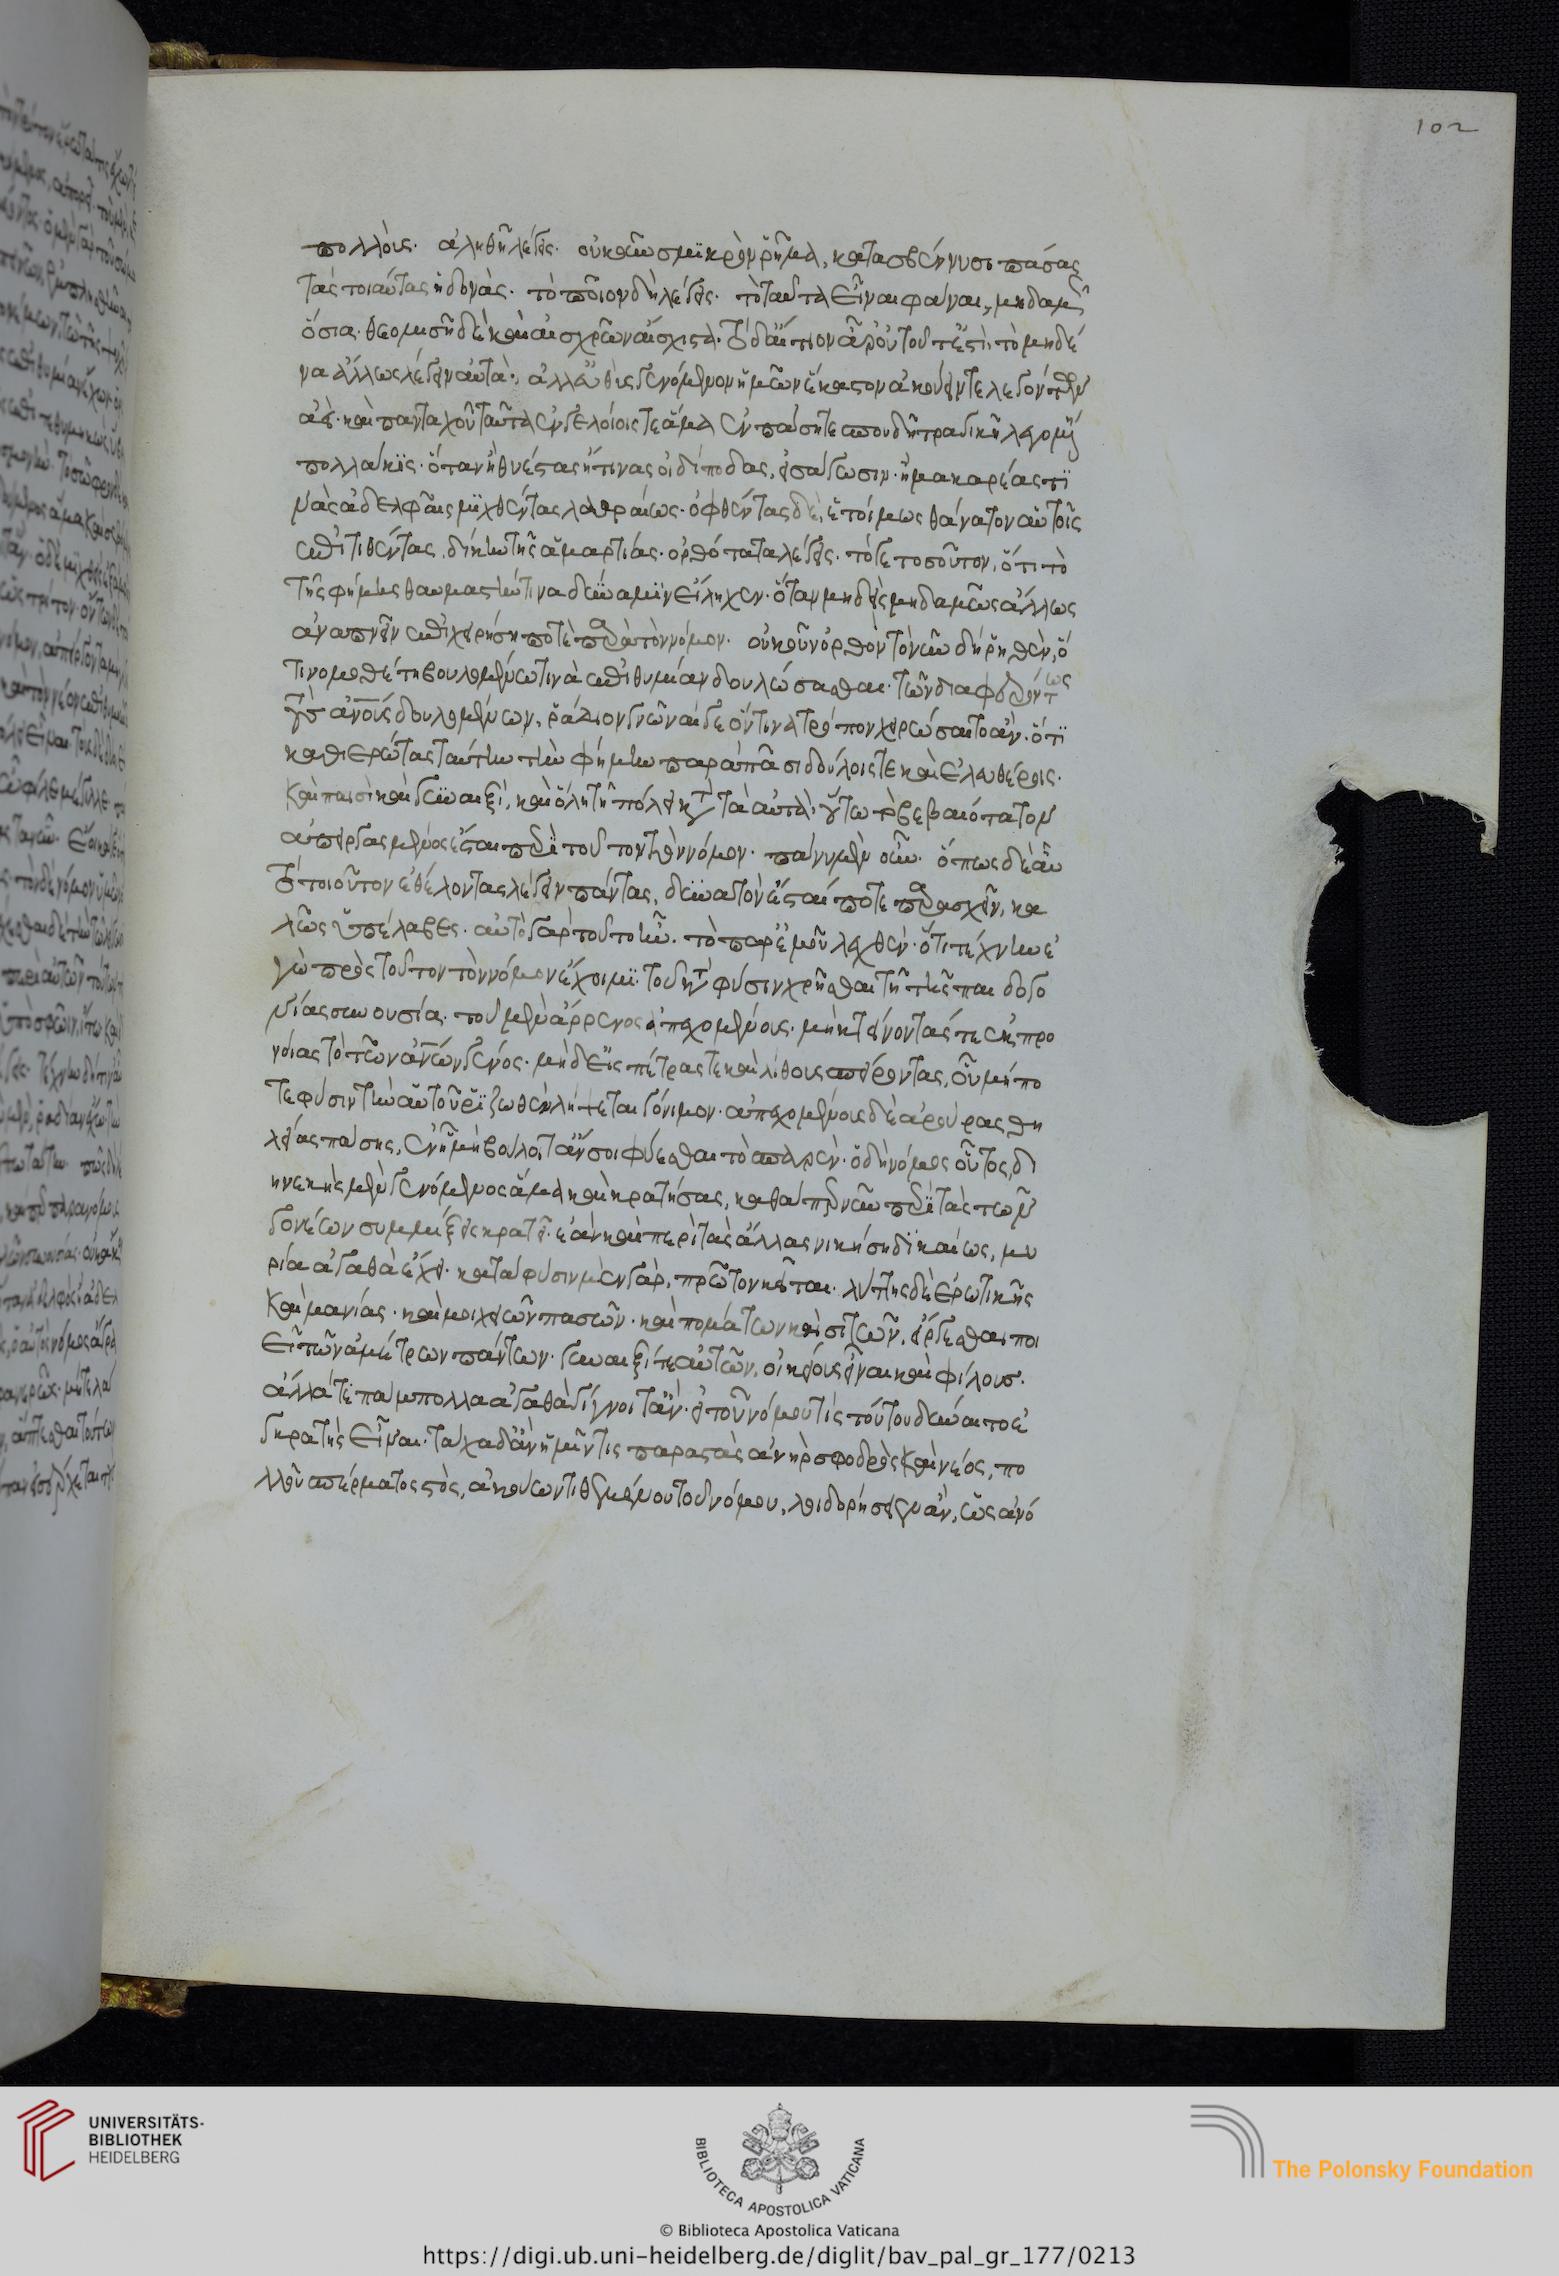 πολλοῖς. ἀληθῆ λέγεις. οὐκοῦν σμϊκρὸν ῥῆμα, κατασβέννυσι πάσας
τὰς τοιαύτας ἡδονάς. τὸ ποῖον δὴ λέγεις. τὸ ταῦτα εἶναι φάναι, μηδαμῶς
ὅσια. θεομισῆ δὲ καὶ αἰσχρῶν αἴσχιστα. τὸ δ' αἴτιον ἆρ' οὐ τοῦτ' ἔστι, τὸ μηδέ
να ἄλλως λέγειν αὐτά. ἀλλ' εὐθὺς γενόμενον ἡμῶν ἕκαστον ἀκούειν τε λεγόντων
ἀεὶ. καὶ πανταχοῦ ταῦτα ἐν γελοίοις τε ἅμα ἐν πάσῃ τε σπουδῇ τραγικῇ λεγομένῃ
πολλάκϊς. ὅταν ἢ θυέστας ἤ τινας οἰδίποδας, εἰσάγωσιν. ἢ μακαρέας τϊ
νὰς ἀδελφαῖς μϊχθέντας λαθραίως. ὀφθέντας δὲ, ἑτοίμως θάνατον αὑτοῖς
ἐπιτιθέντας, δίκην τῆς ἁμαρτίας. ὀρθότατα λέγεις. τό γε τοσοῦτον, ὅτι τὸ
τῆς φήμης θαυμαστήν τινα δύναμϊν εἴληχεν. ὅταν μηδεὶς μηδαμῶς ἄλλως
ἀναπνεῖν ἐπιχειρήσῃ ποτὲ παρὰ τὸν νόμον. οὐκοῦν ὀρθὸν τὸ νῦν δὴ ῥηθὲν, ὅ
τι νομοθέτῃ βουλομένῳ τινὰ ἐπιθυμίαν δουλώσασθαι. τῶν διαφερόντως
τοὺς ἀνοὺς δουλομένων, ῥάδιον γνῶναί γε ὅντινα τρόπον χειρώσαιτο ἄν. ὅτϊ
καθιερώσας ταύτην τὴν φήμην παρὰ πᾶσι δούλοις τε καὶ ἐλευθέροις.
καὶ παισὶ καὶ γυναιξὶ, καὶ ὅλῃ τῇ πόλει κατὰ τὰ αὐτά. οὕτω τὸ βεβαιότατον
ἀπειργασμένος ἔσται περὶ τοῦτον τὸν νόμον. πάνυ μὲν οὖν. ὅπως δὲ αὖ
τὸ τοιοῦτον ἐθέλοντας λέγειν πάντας, δυνατὸν ἔσται ποτε παρασχεῖν, κα
λῶς ὑπέλαβες. αὐτὸ γὰρ τοῦτο ἦν. τὸ παρ' ἐμοῦ λεχθέν. ὅτι τέχνην ἐ
γὼ πρὸς τοῦτον τὸν νόμον ἔχοιμϊ. τοῦ κατὰ φύσιν χρῆσθαι τῇ τῆς παιδογο
νίας συνουσίᾳ. τοῦ μὲν ἄρρενος ἀπεχομένους. μὴ κτείνοντάς τε ἐκ προ
νοίας τὸ τῶν ἀνῶν γένος. μηδ' εἰς πέτρας τε καὶ λίθους σπείροντας, οὗ μήπο
τε φύσιν τὴν αὑτοῦ ῥϊζωθὲν λήψεται γόνιμον. ἀπεχομένους δὲ ἀρούρας θη
λείας πάσης, ἐν ᾗ μὴ βούλοιτ' ἄν σοι φύεσθαι τὸ σπαρέν. ὁ δὴ νόμος οὗτος, δι
ηνεκὴς μὲν γενόμενος ἅμα καὶ κρατήσας, καθάπερ νῦν περὶ τὰς τῶν
γονέων συμμίξεις κρατεῖ. ἐὰν καὶ περὶ τὰς ἄλλας νικήσῃ δϊκαίως, μυ
ρία ἀγαθὰ ἔχει. κατὰ φύσιν μὲν γὰρ, πρῶτον κεῖται. λύττης δὲ ἐρωτικῆς
καὶ μανίας. καὶ μοιχειῶν πασῶν. καὶ πομάτων καὶ σίτων, εἴργεσθαι ποι
εῖ τῶν ἀμέτρων πάντων. γυναιξί τε αὐτῶν, οἰκείους εἶναι καὶ φίλους.
ἄλλά τε παμπολλα ἀγαθὰ γίγνοιτ' ἄν. εἰ τοῦ νόμου τίς τούτου δύναιτο ἐ
γκρατὴς εἶναι. τάχα δ' ἂν ἡμῖν τις παραστὰς ἀνὴρ σφοδρὸς καὶ νέος, πο
λλοῦ σπέρματος μεστὸς, ἀκούων τιθεμένου τοῦ νόμου, λοιδορήσειεν ἂν, ὡς ἀνό
102
UNIVERSITÄTS-
BIBLIOTHEK
HEIDELBERG
BIBLIOTECA APOSTOLICA VATICANA
The Polonsky Foundation
© Biblioteca Apostolica Vaticana
https://digi.ub.uni-heidelberg.de/diglit/bav_pal_gr_177/0213